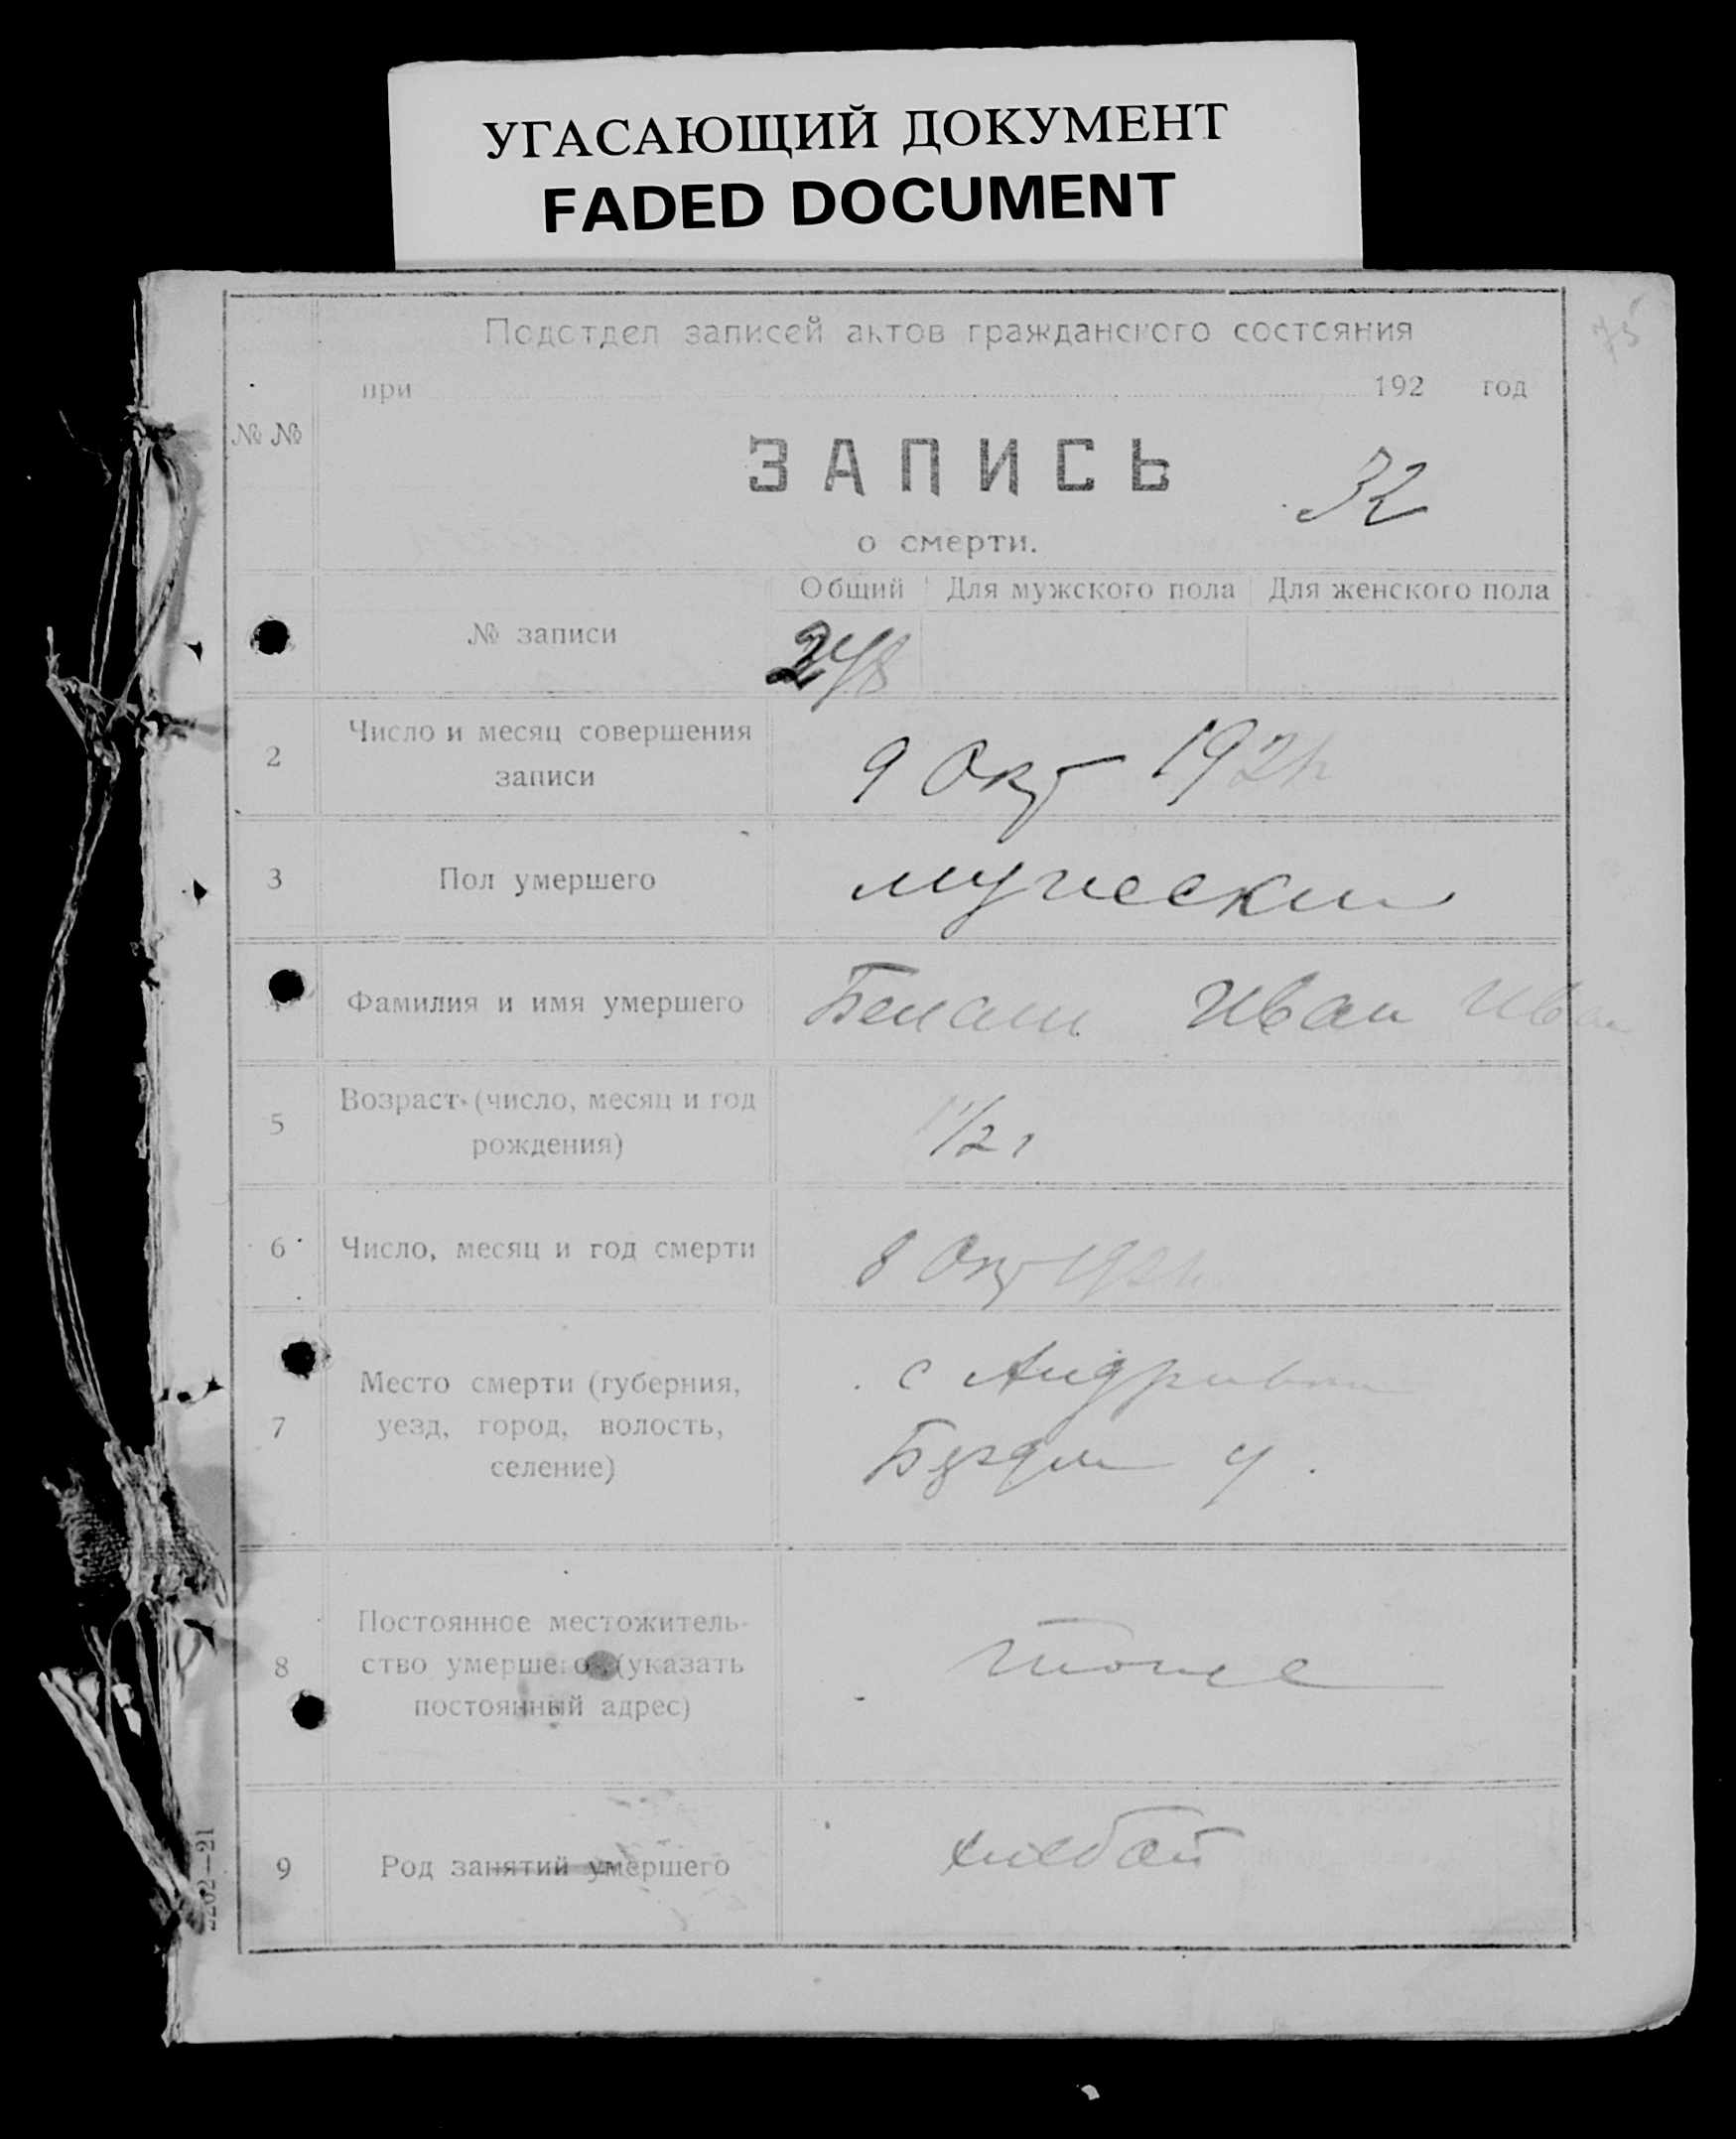 УГАСАЮЩИЙ ДОКУМЕНТ
FADED DOCUMENT
75
Подотдел записей актов гражданского состояния
при 192 год
№ №
ЗАПИСЬ
32
о смерти.
Общий Для мужского пола Для женского пола
№ записи
248
2 Число и месяц совершения
записи
9 Окт 192
3 Пол умершего
мужески
4 Фамилия и имя умершего
Иван Иван
5 Возраст (число, месяц и год
рождения)
1 1/2 г
6 Число, месяц и год смерти
8 Окт 192
7 Место смерти (губерния,
уезд, город, волость,
селение)
с
у.
8 Постоянное местожитель-
ство умершего (указать
постоянный адрес)
тоже
9 Род занятий умершего
хлебоп
2262—21